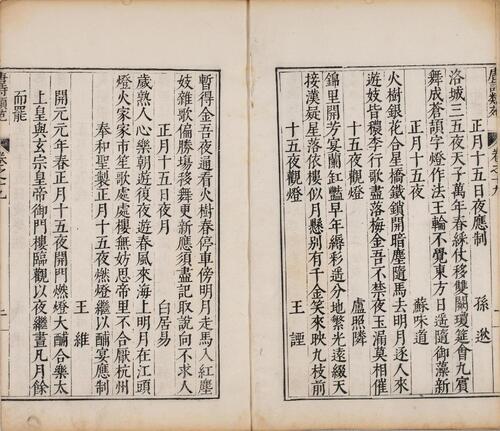 唐詩類苑 卷之十九
正月十五日夜應制 孫逖
洛城三五夜天子萬年春綵仗移雙闕瓊筵會九賓
舞成蒼頡字燈作法王輪不覺東方日遥隨御藻新
正月十五夜 蘇味道
火樹銀花合星橋鐵鎖開暗塵隨馬去明月逐人來
遊妓皆穠李行歌盡落梅金吾不禁夜玉漏莫相催
十五夜觀燈 盧照隣
錦里開芳宴蘭缸豔早年縟彩遥分地繁光遠綴天
接漢疑星落依樓似月懸别有千金笑來映九枝前
十五夜觀燈 王諲
暫得金吾夜通看火樹春停車傍明月走馬入紅塵
妓雜歌偏勝場移舞更新應須盡記取說向不求人
正月十五日夜月 白居易
歲熟人心樂朝遊復夜遊春風來海上明月在江頭
燈火家家市笙歌處處樓無妨思帝里不合厭杭州
奉和聖製正月十五夜燃燈繼以酺宴應制 王維
開元元年春正月十五夜開門燃燈大酺合樂太
上皇與玄宗皇帝御門樓臨觀以夜繼晝凡月餘
而罷
唐詩類苑 卷之十九 二